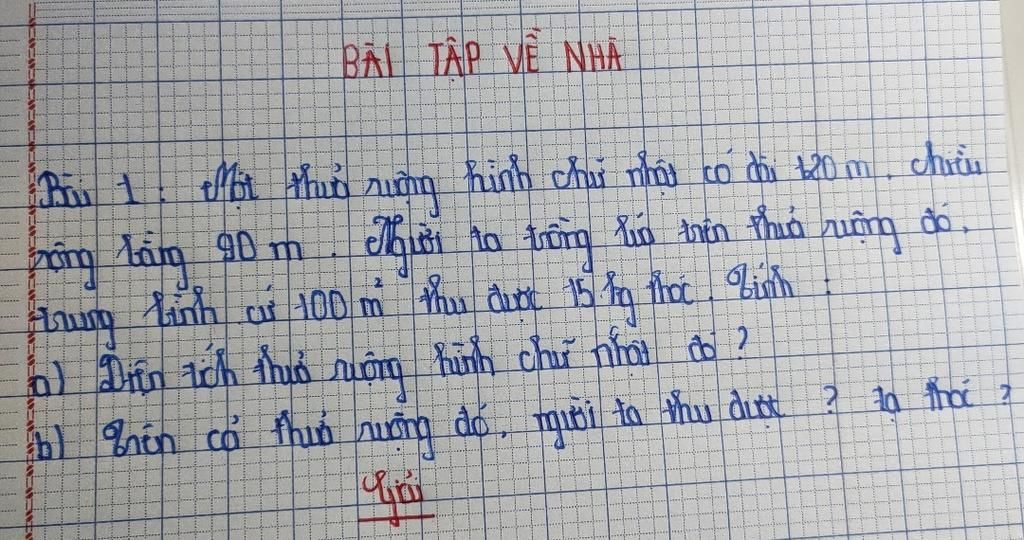 BÀI TẬP VỀ NHÀ
Bài 1: Một thửa ruộng hình chữ nhật có dài 120 m. chiều
rộng bằng 90 m. Người ta trồng lúa trên thửa ruộng đó.
trung bình cứ 100 m² thu được 15 kg thóc. Tính:
a) Diện tích thửa ruộng hình chữ nhật đó?
b) Trên cả thửa ruộng đó, người ta thu được ? tạ thóc?
Giải